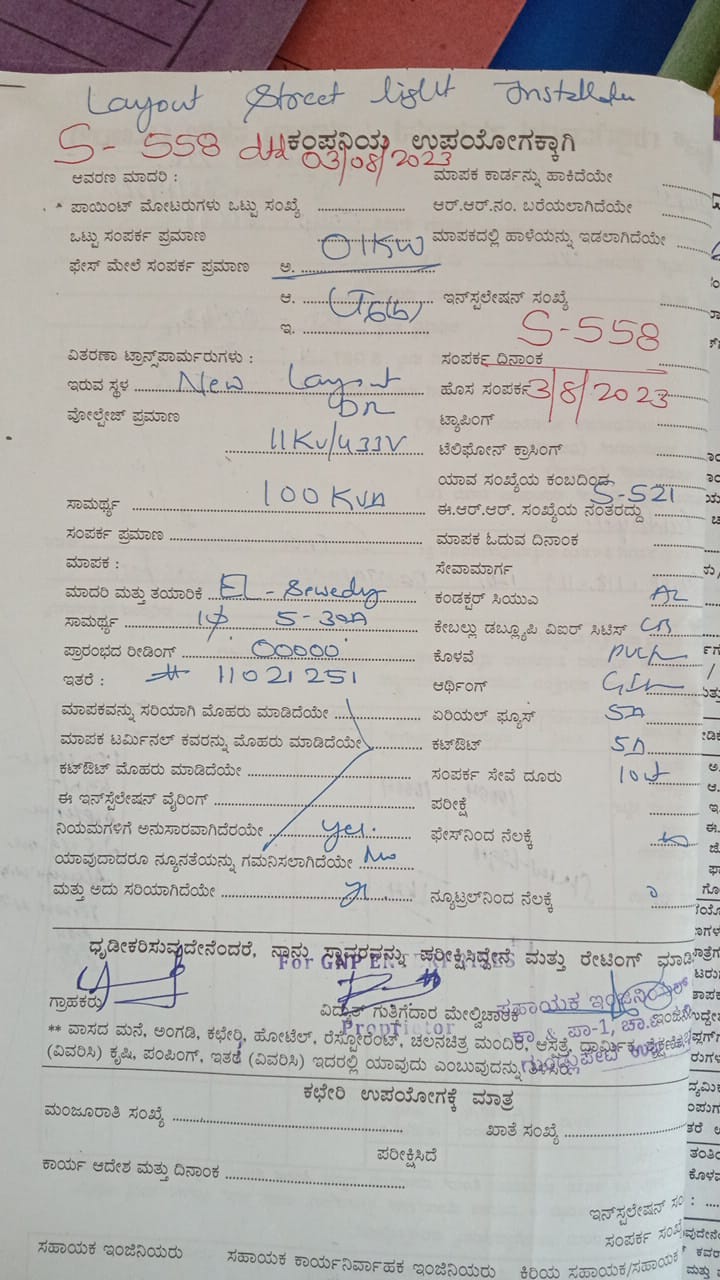 Layout Street light Installation
ಕಂಪನಿಯ ಉಪಯೋಗಕ್ಕಾಗಿ
S-558 dtd 03/08/2023
ಆವರಣ ಮಾದರಿ : ಮಾಪಕ ಕಾರ್ಡನ್ನು ಹಾಕಿದೆಯೇ
* ಪಾಯಿಂಟ್ ಮೋಟರುಗಳು ಒಟ್ಟು ಸಂಖ್ಯೆ ಆರ್.ಆರ್.ನಂ. ಬರೆಯಲಾಗಿದೆಯೇ
ಒಟ್ಟು ಸಂಪರ್ಕ ಪ್ರಮಾಣ 01KW ಮಾಪಕದಲ್ಲಿ ಹಾಳೆಯನ್ನು ಇಡಲಾಗಿದೆಯೇ
ಫೇಸ್ ಮೇಲೆ ಸಂಪರ್ಕ ಪ್ರಮಾಣ ಅ.
ಆ. LT6(b) ಇನ್‌ಸ್ಟಲೇಷನ್ ಸಂಖ್ಯೆ
ಇ. S-558
ವಿತರಣಾ ಟ್ರಾನ್ಸ್‌ಪಾರ್ಮರುಗಳು : ಸಂಪರ್ಕ ದಿನಾಂಕ
ಇರುವ ಸ್ಥಳ New Layout ಹೊಸ ಸಂಪರ್ಕ 3/8/2023
ವೋಲ್ಟೇಜ್ ಪ್ರಮಾಣ ಟ್ಯಾಪಿಂಗ್
11KV/433V ಟೆಲಿಫೋನ್ ಕ್ರಾಸಿಂಗ್
ಯಾವ ಸಂಖ್ಯೆಯ ಕಂಬದಿಂದ S-521
ಸಾಮರ್ಥ್ಯ 100KVA ಈ.ಆರ್.ಆರ್. ಸಂಖ್ಯೆಯ ನಂತರದ್ದು
ಸಂಪರ್ಕ ಪ್ರಮಾಣ ಮಾಪಕ ಓದುವ ದಿನಾಂಕ
ಮಾಪಕ : ಸೇವಾಮಾರ್ಗ
ಮಾದರಿ ಮತ್ತು ತಯಾರಿಕೆ EL-Sewedy ಕಂಡಕ್ಟರ್ ಸಿಯುಎ AL
ಸಾಮರ್ಥ್ಯ 1φ 5-30A ಕೇಬಲ್ಲು ಡಬ್ಲ್ಯೂಪಿ ವಿಐರ್ ಸಿಟಿಸ್
ಪ್ರಾರಂಭದ ರೀಡಿಂಗ್ 00000 ಕೊಳವೆ
ಇತರೆ : # 11021251 ಆರ್ಥಿಂಗ್
ಮಾಪಕವನ್ನು ಸರಿಯಾಗಿ ಮೊಹರು ಮಾಡಿದೆಯೇ ಏರಿಯಲ್ ಫ್ಯೂಸ್ 5A
ಮಾಪಕ ಟರ್ಮಿನಲ್ ಕವರನ್ನು ಮೊಹರು ಮಾಡಿದೆಯೇ ಕಟ್‌ಔಟ್ 5A
ಕಟ್‌ಔಟ್ ಮೊಹರು ಮಾಡಿದೆಯೇ ಸಂಪರ್ಕ ಸೇವೆ ದೂರು
ಈ ಇನ್‌ಸ್ಟಲೇಷನ್ ವೈರಿಂಗ್ ಪರೀಕ್ಷೆ
ನಿಯಮಗಳಿಗೆ ಅನುಸಾರವಾಗಿದೆರಯೇ yes. ಫೇಸ್‌ನಿಂದ ನೆಲಕ್ಕೆ
ಯಾವುದಾದರೂ ನ್ಯೂನತೆಯನ್ನು ಗಮನಿಸಲಾಗಿದೆಯೇ No
ಮತ್ತು ಅದು ಸರಿಯಾಗಿದೆಯೇ ನ್ಯೂಟ್ರಲ್‌ನಿಂದ ನೆಲಕ್ಕೆ
ಧೃಡೀಕರಿಸುವುದೇನೆಂದರೆ, ನಾನು ಸ್ಥಾವರವನ್ನು ಪರೀಕ್ಷಿಸಿದ್ದೇನೆ ಮತ್ತು ರೇಟಿಂಗ್ ಮಾಡಿ
For GNP ENTERPRISES
ಗ್ರಾಹಕರು ವಿದ್ಯುತ್ ಗುತ್ತಿಗೆದಾರ ಮೇಲ್ವಿಚಾರಕ
Proprietor
ಸಹಾಯಕ ಇಂಜಿನಿಯರ್
ಕಾ & ಪಾ-1,
ಗುಂಡ್ಲುಪೇಟೆ
** ವಾಸದ ಮನೆ, ಅಂಗಡಿ, ಕಛೇರಿ, ಹೋಟೆಲ್, ರೆಸ್ಟೋರೆಂಟ್, ಚಲನಚಿತ್ರ ಮಂದಿರ, ಆಸ್ಪತ್ರೆ, ಧಾರ್ಮಿಕ,
(ವಿವರಿಸಿ) ಕೃಷಿ, ಪಂಪಿಂಗ್, ಇತರೆ (ವಿವರಿಸಿ) ಇದರಲ್ಲಿ ಯಾವುದು ಎಂಬುವುದನ್ನು ತಿಳಿಸಿರಿ.
ಕಛೇರಿ ಉಪಯೋಗಕ್ಕೆ ಮಾತ್ರ
ಮಂಜೂರಾತಿ ಸಂಖ್ಯೆ ಖಾತೆ ಸಂಖ್ಯೆ
ಪರೀಕ್ಷಿಸಿದೆ
ಕಾರ್ಯ ಆದೇಶ ಮತ್ತು ದಿನಾಂಕ
ಇನ್‌ಸ್ಟಲೇಷನ್ ಸಂ
ಸಂಪರ್ಕ ಸಂಖ್ಯೆ
ಸಹಾಯಕ ಇಂಜಿನಿಯರು ಸಹಾಯಕ ಕಾರ್ಯನಿರ್ವಾಹಕ ಇಂಜಿನಿಯರು ಕಿರಿಯ ಸಹಾಯಕ/ಸಹಾಯಕ